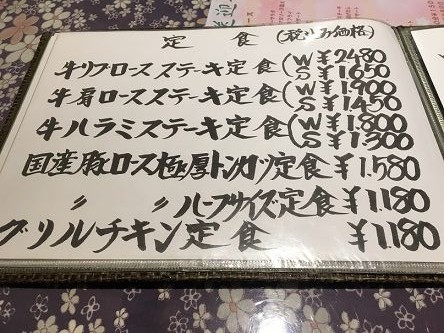 定食(税込み価格)
牛リブロースステーキ定食(W ¥2480
S ¥1.650
牛肩ロースステーキ定食(W ¥1.900
S ¥1.450
牛ハラミステーキ定食(W ¥1.800
S ¥1.300
国産豚ロース極厚トンカツ定食 ¥1.580
〃 〃 ハーフサイズ定食 ¥1.180
グリルチキン定食 ¥1.180